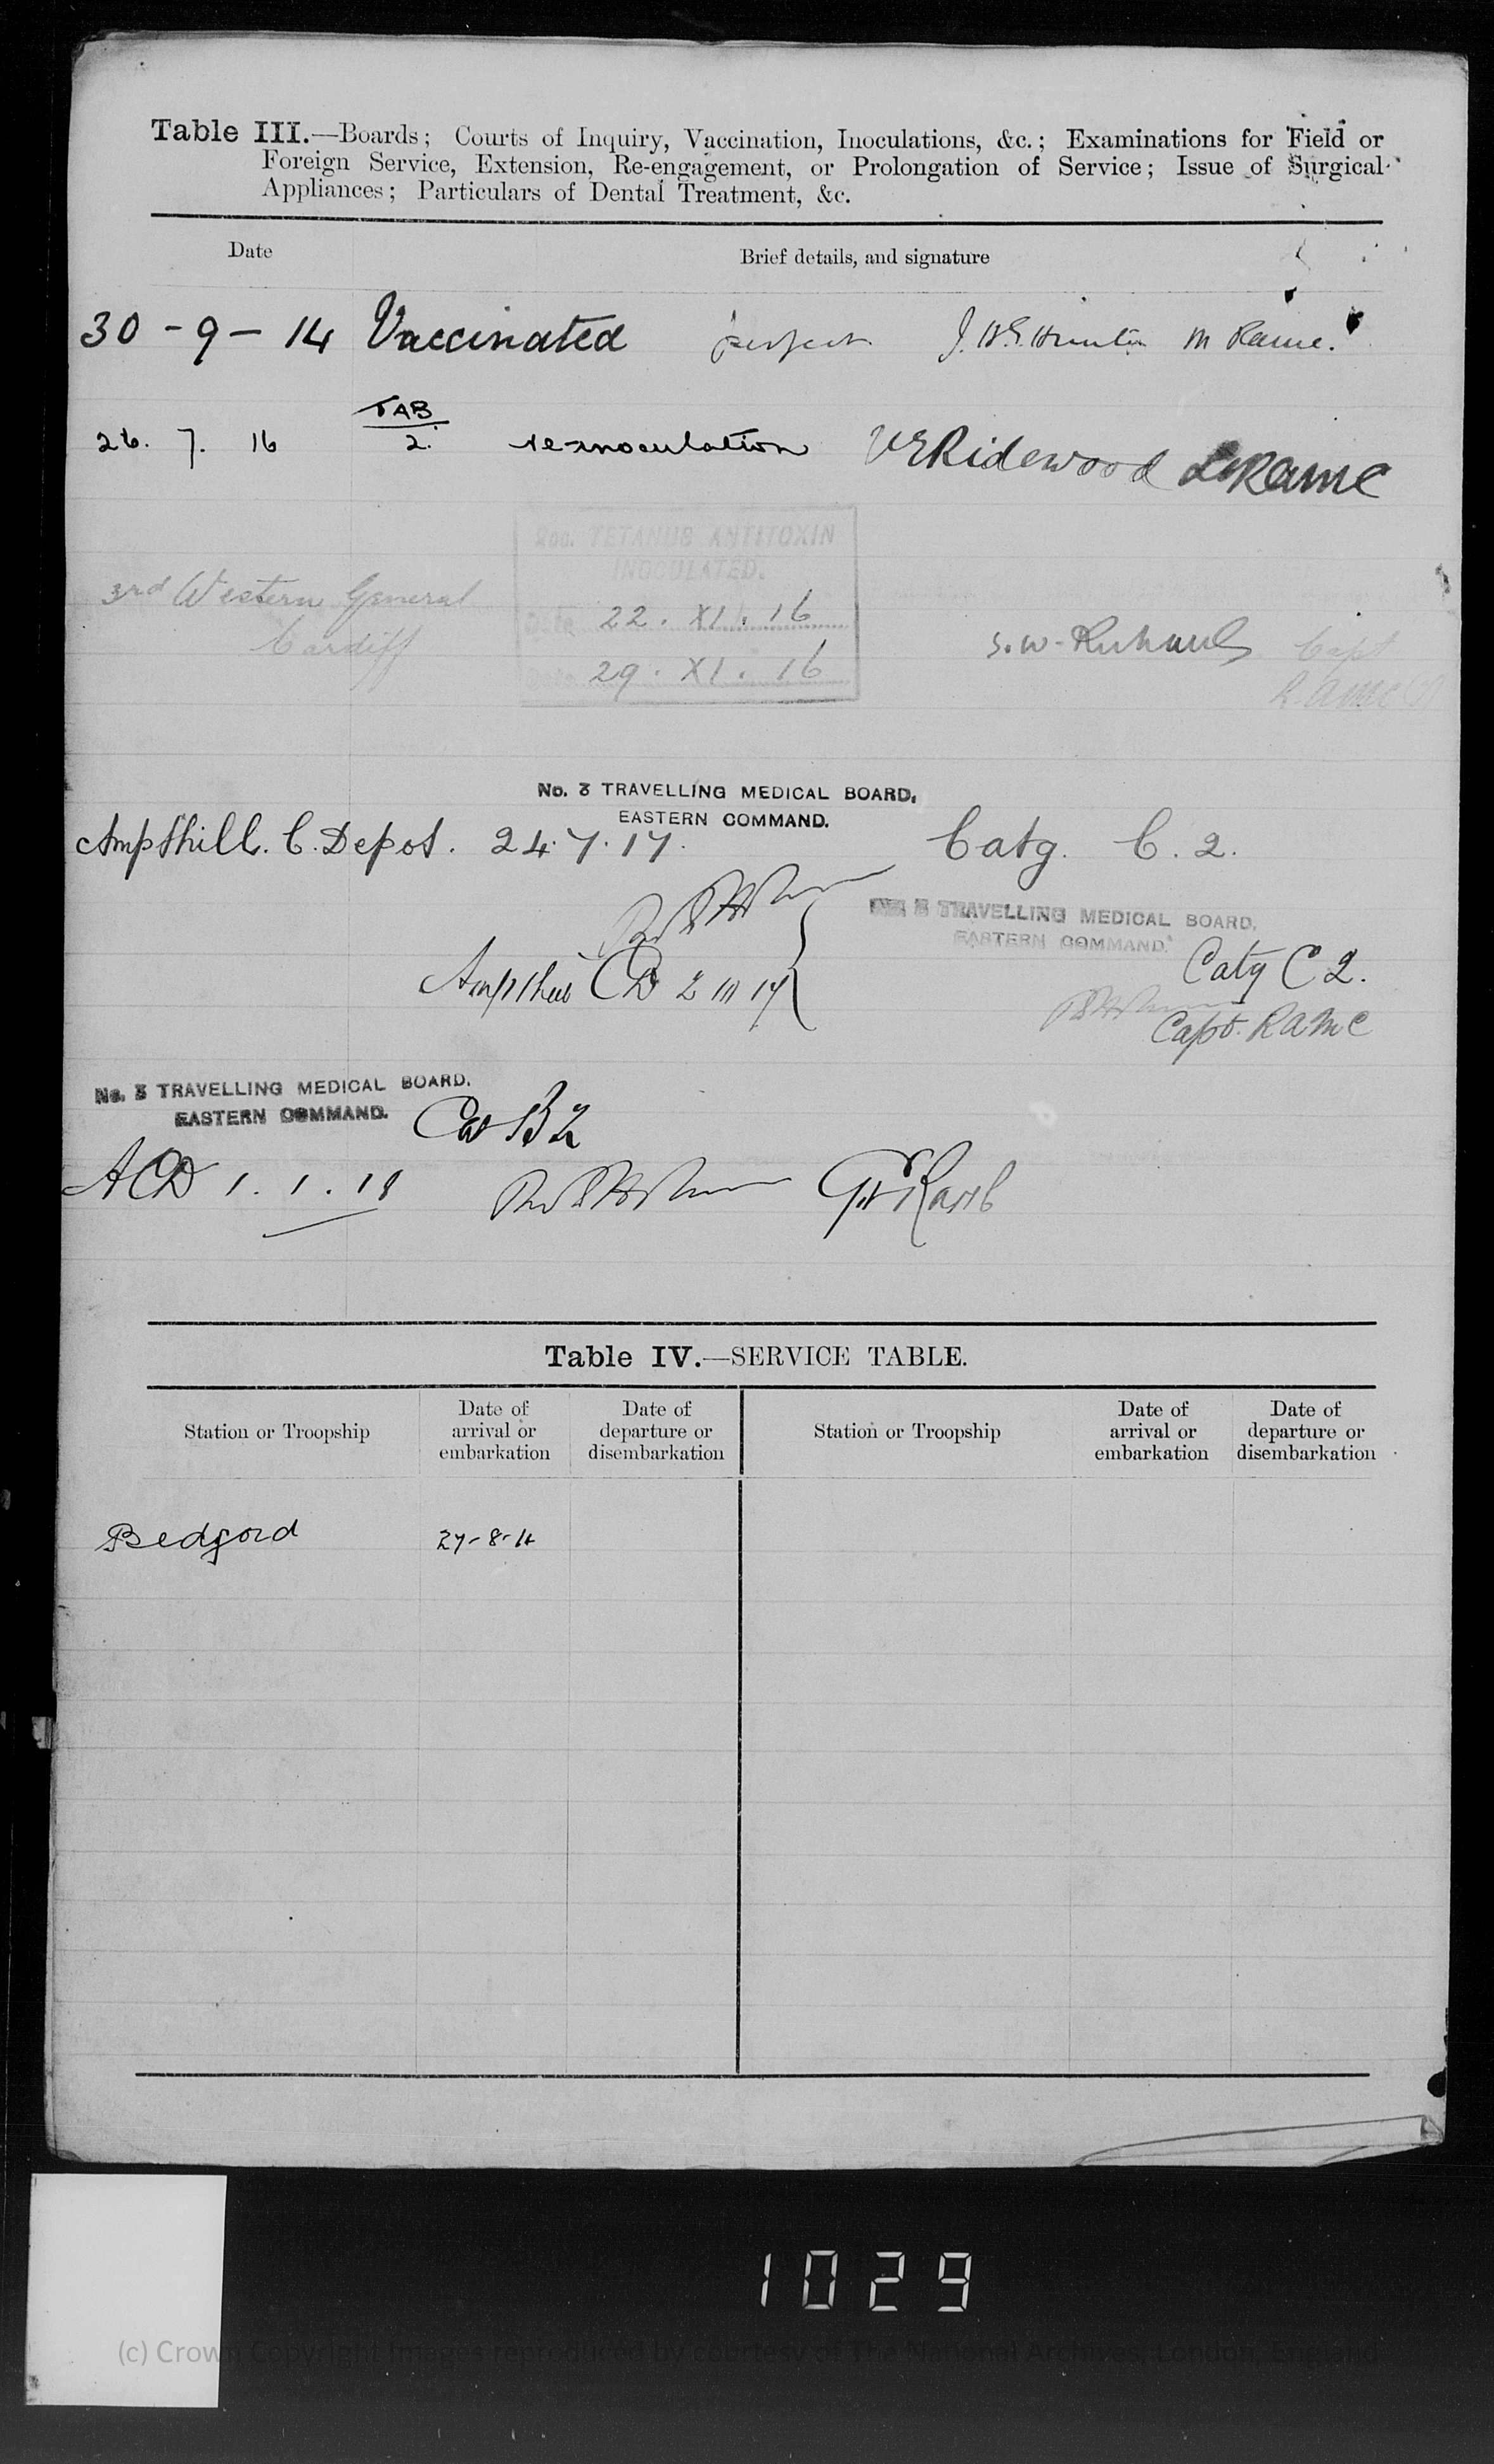 Table III.—Boards; Courts of Inquiry, Vaccination, Inoculations, &c.; Examinations for Field or
Foreign Service, Extension, Re-engagement, or Prolongation of Service; Issue of Surgical
Appliances; Particulars of Dental Treatment, &c.
Date Brief details, and signature
30 - 9 - 14 Vaccinated perfect J. H. E. Hunter
26. 7. 16 TAB 2. re-inoculation V E Ridewood Lt RAMC
TETANUS ANTITOXIN
INOCULATED.
3rd Western General Date 22. XI. 16
Cardiff S. W. Capt
Date 29. XI. 16 R.A.M.C.
No. 3 TRAVELLING MEDICAL BOARD,
EASTERN COMMAND.
Ampthill. C. Depot. 24.7.17. Catg. C. 2.
TRAVELLING MEDICAL BOARD,
EASTERN COMMAND.
Ampthill CD 2 10 17 Catg C 2.
Capt. RAMC
No. 3 TRAVELLING MEDICAL BOARD.
EASTERN COMMAND. Cat B 2
ACD 1. 1. 18
Table IV.—SERVICE TABLE.
Station or Troopship Date of arrival or embarkation Date of departure or disembarkation Station or Troopship Date of arrival or embarkation Date of departure or disembarkation
Bedford 27-8-14
1029
(c) Crown Copyright Images reproduced by courtesy of The National Archives, London, England